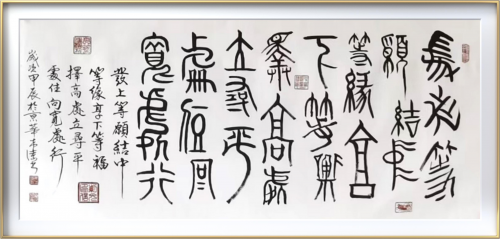 發上等
願結中
等緣享
下等福
擇高處
立尋平
處住向
寬處行
發上等願結中
等緣享下等福
擇高處立尋平
處住向寬處行
歲次甲辰於京華